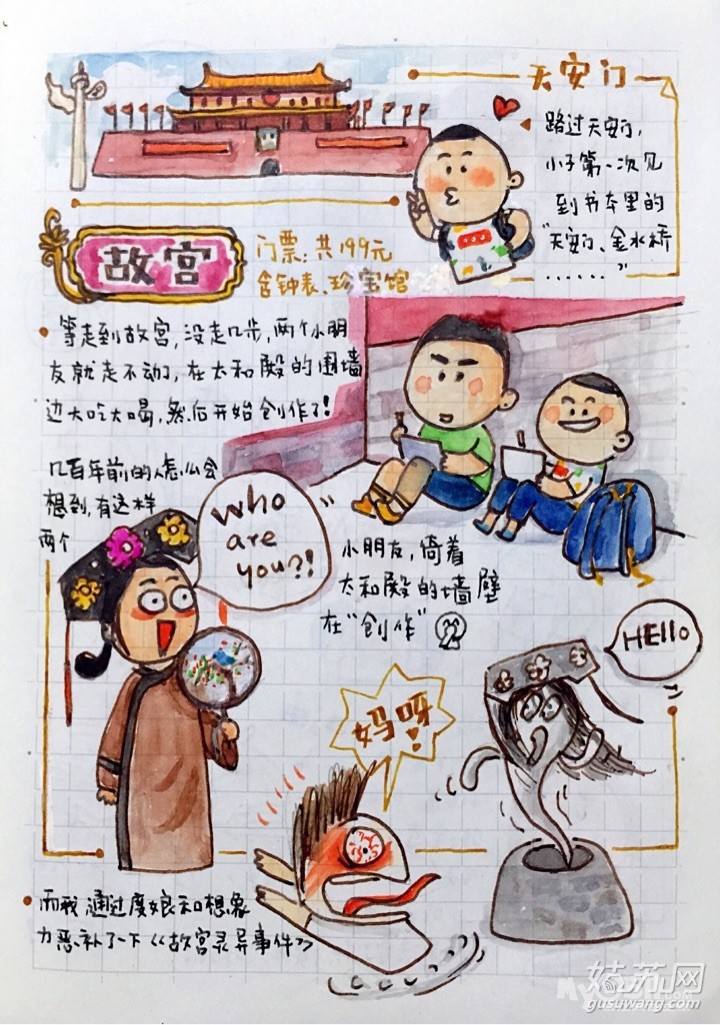 天安门
路过天安门,
小子第一次见
到书本里的
"天安门、金水桥
......"
故宫
门票:共199元
含钟表、珍宝馆
等走到故宫,没走几步,两个小朋
友就走不动了,在太和殿的围墙
边大吃大喝,然后开始创作了!
几百年前的人怎么会
想到,有这样
两个
who
are
you?!
小朋友,倚着
太和殿的墙壁
在"创作"
HEllo
妈呀
!
而我通过度娘和想象
力恶补了一下《故宫灵异事件》
姑苏网
gusuwang.com